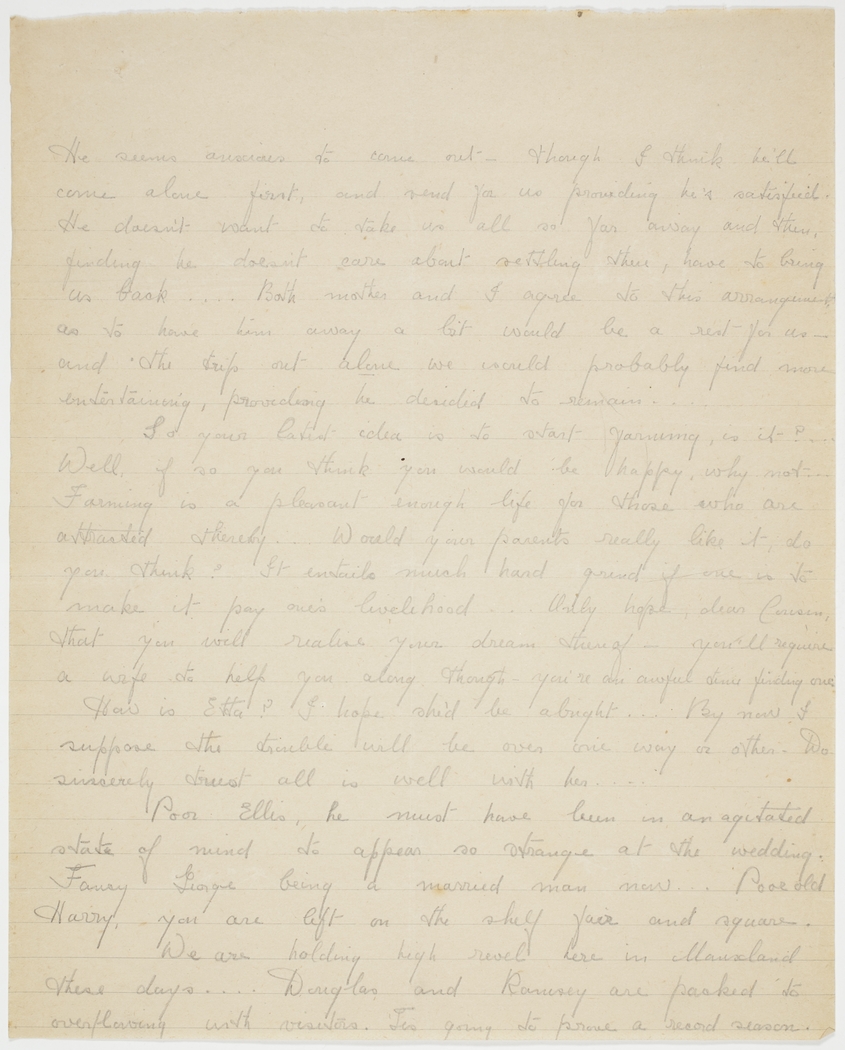 He seems anxious to come out – though I think he'll
come alone first, and send for us providing he's satisfied.
He doesn't want to take us all so far away and then,
finding he doesn't care about settling there, have to bring
us back .... Both mother and I agree to this arrangement
as to have him away a bit would be a rest for us –
and the trip out alone we would probably find more
entertaining, providing he decided to remain ....
So your latest idea is to start farming, is it? ...
Well, if so you think you would be happy, why not –
Farming is a pleasant enough life for those who are
attracted thereby ... Would your parents really like it, do
you think? It entails much hard grind if one is to
make it pay one's livelihood ... Only hope, dear Cousin,
that you will realise your dream – you'll require
a wife to help you along though – you're an awful time finding one.
How is Etta? I hope she'd be alright ... By now I
suppose the trouble will be over one way or other – Do
sincerely trust all is well with her ....
Poor Ellis, he must have been in an agitated
state of mind to appear so strange at the wedding.
Fancy George being a married man now ... Poor old
Harry, – you are left on the shelf fair and square.
We are holding high revel here in Manxland
these days .... Douglas and Ramsey are packed to
overflowing with visitors. Tis going to prove a record season.